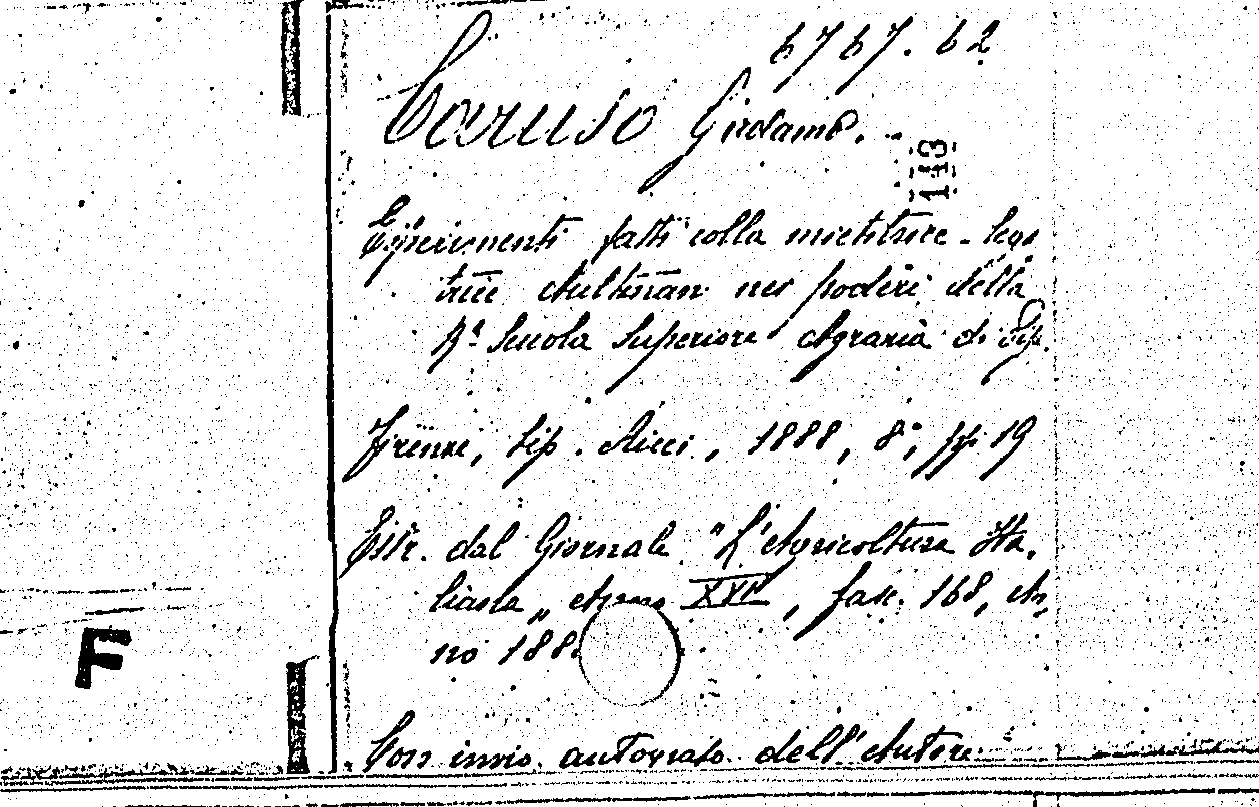 6767.62
Caruso Girolamo.
113
Esperimenti fatti colla mietitrice - lega
trice Aultman nei poderi della
Rª Scuola Superiore Agraria di
Firenze, tip. Ricci, 1888, 8°, pp. 19
Estr. dal Giornale "L'Agricoltura Ita.
liana„ Anno XVI, fasc. 168, An,
no 188
Con invio autografo dell'Autore
F